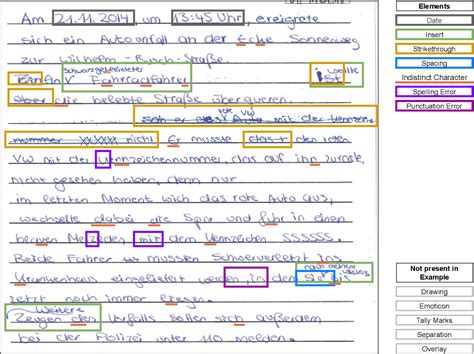 Am 21.11.2014, um 13:45 Uhr, ereignete
sich ein Autounfall an der Ecke Sonnenweg
zur Wilhelm-Busch-Straße.
Ein schwarzgekleideter Fahrradfahrer ist wollte
über die belebte Straße überqueren.
sah er das rote VW Auto mit der
nummer XXXXXX nicht Er musste das t den roten
VW mit der Kennzeichennummer, das auf ihn zuraste,
nicht gesehen haben, denn nur
im letzten Moment wich das rote Auto aus,
wechselte dabei die Spur und fuhr in einen
braunen Mezedes mit dem Kennzeichen SSSSSS.
Beide Fahrer mussten Schwerverletzt ins
Krankenhaus eingeliefert werden, in dem sie mit nach meinem
jetzt noch immer liegen.
Weitere
Zeugen des Unfalls sollen sich außerdem
bei der Polizei unter 110 melden.
Elements
Date
Insert
Strikethrough
Spacing
Indistinct Character
Spelling Error
Punctuation Error
Not present in
Example
Drawing
Emoticon
Tally Marks
Separation
Overlay